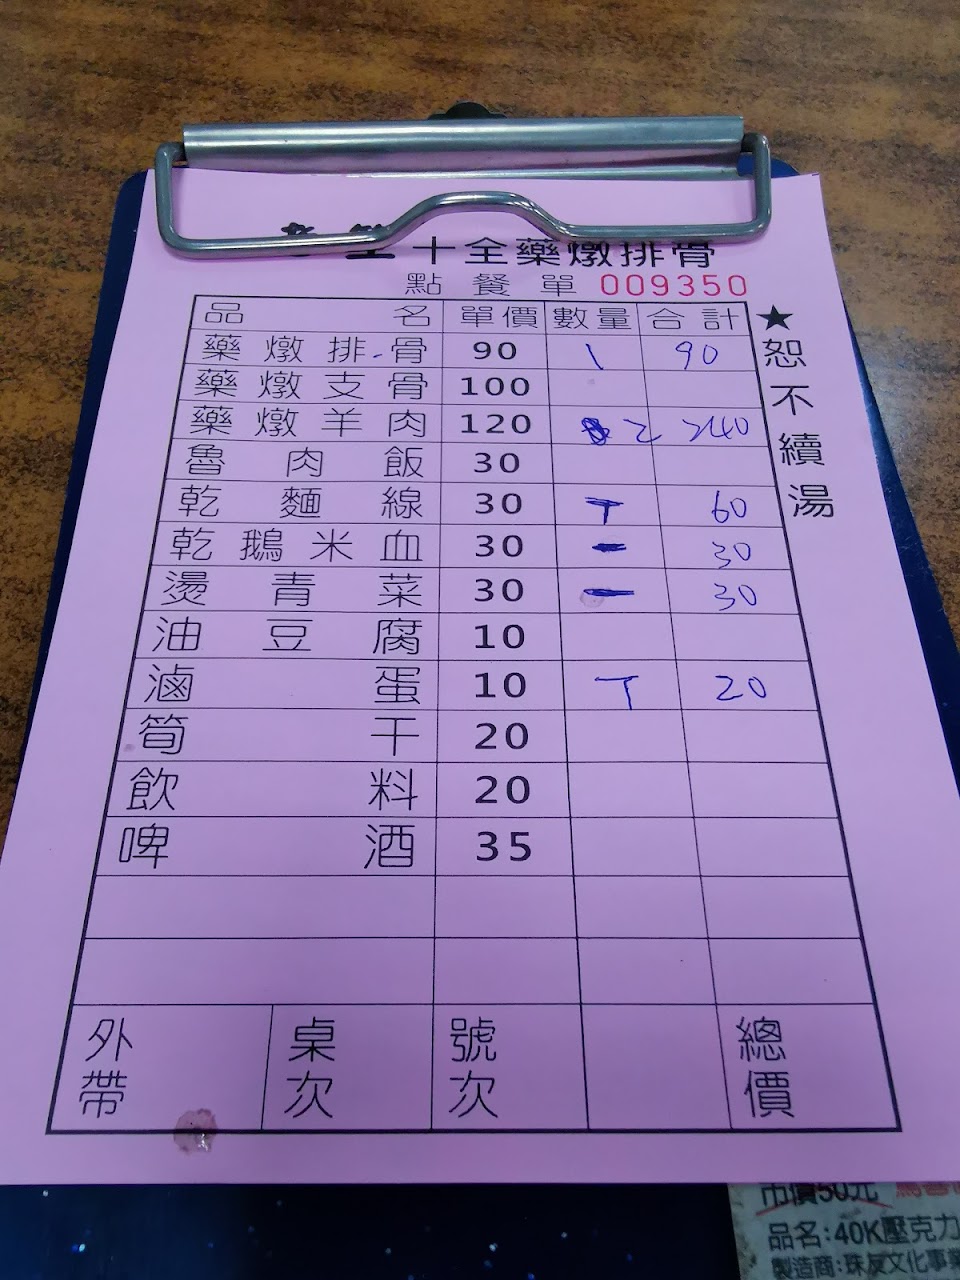 十全藥燉排骨
點餐單 009350
品名 單價 數量 合計
藥燉排骨 90 1 90
藥燉支骨 100
藥燉羊肉 120 2 240
魯肉飯 30
乾麵線 30 T 60
乾鵝米血 30 一 30
燙青菜 30 一 30
油豆腐 10
滷蛋 10 T 20
筍干 20
飲料 20
啤酒 35
外帶 桌次 號次 總價
★恕不續湯
市價50元
品名:40K壓克力
製造商:珠友文化事